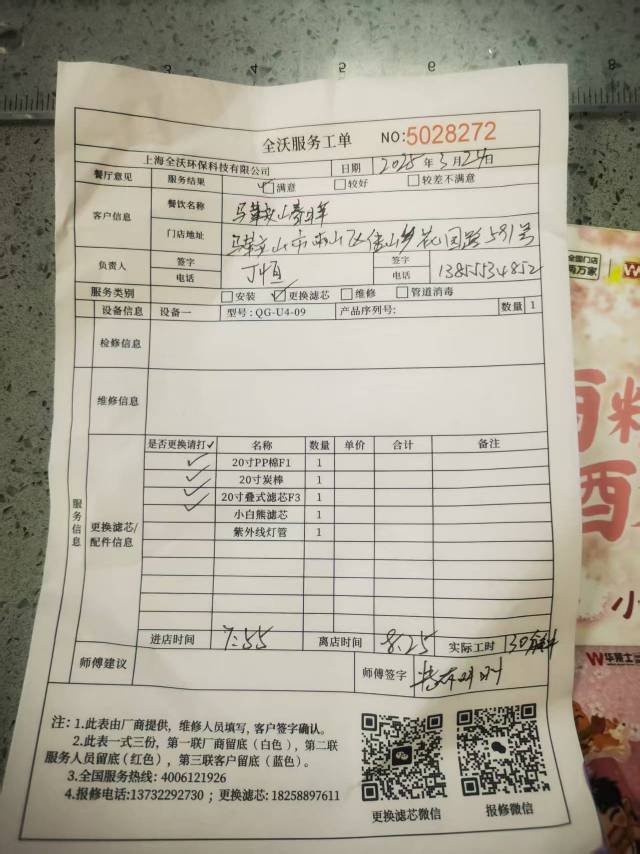 全沃服务工单 NO:5028272
上海全沃环保科技有限公司 日期 2025年3月24日
餐厅意见 服务结果 ☑满意 □较好 □较差不满意
客户信息 餐饮名称 马鞍山
门店地址 马鞍山市 山区佳山乡花园路581号
负责人 签字 丁恒 签字
电话 电话 13855534852
服务类别 □安装 ☑更换滤芯 □维修 □管道消毒
设备信息 设备一 型号:QG-U4-09 产品序列号: 数量 1
检修信息
维修信息
服务信息
更换滤芯/配件信息
是否更换请打✓ 名称 数量 单价 合计 备注
✓ 20寸PP棉F1 1
✓ 20寸炭棒 1
✓ 20寸叠式滤芯F3 1
✓ 小白熊滤芯 1
紫外线灯管 1
进店时间 7:55 离店时间 8:25 实际工时 30分钟
师傅建议 师傅签字
注:1.此表由厂商提供,维修人员填写,客户签字确认。
2.此表一式三份,第一联厂商留底(白色),第二联
服务人员留底(红色),第三联客户留底(蓝色)。
3.全国服务热线: 4006121926
4.报修电话:13732292730 ; 更换滤芯: 18258897611
更换滤芯微信 报修微信
全国门店
万家
W
酒
小
W华莱士